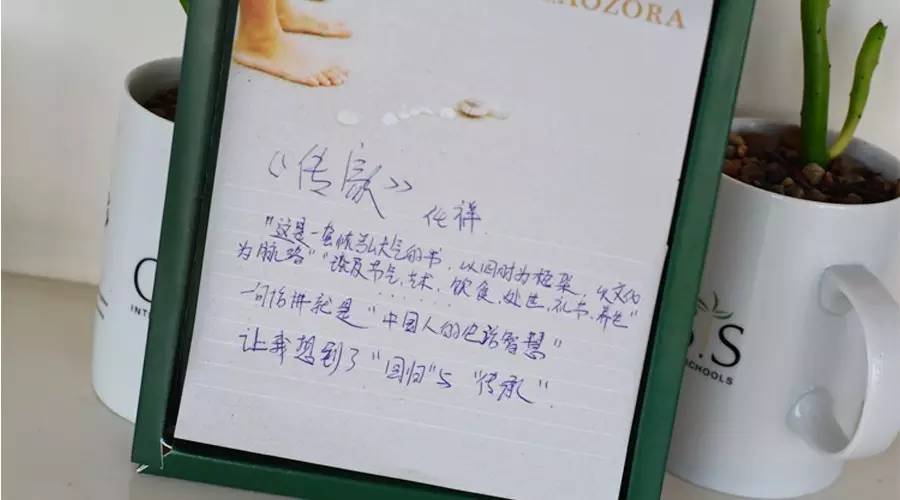 AOZORA
《传家》
任祥
"这是一套恢弘大气的书，以四时为框架，以文化
为脉络""谈及节气、艺术、饮食、处世、礼书、养生"
一句话讲就是"中国人的生活智慧"
让我想到了"回归"与"传承".
INT
.S
SCHOOLS